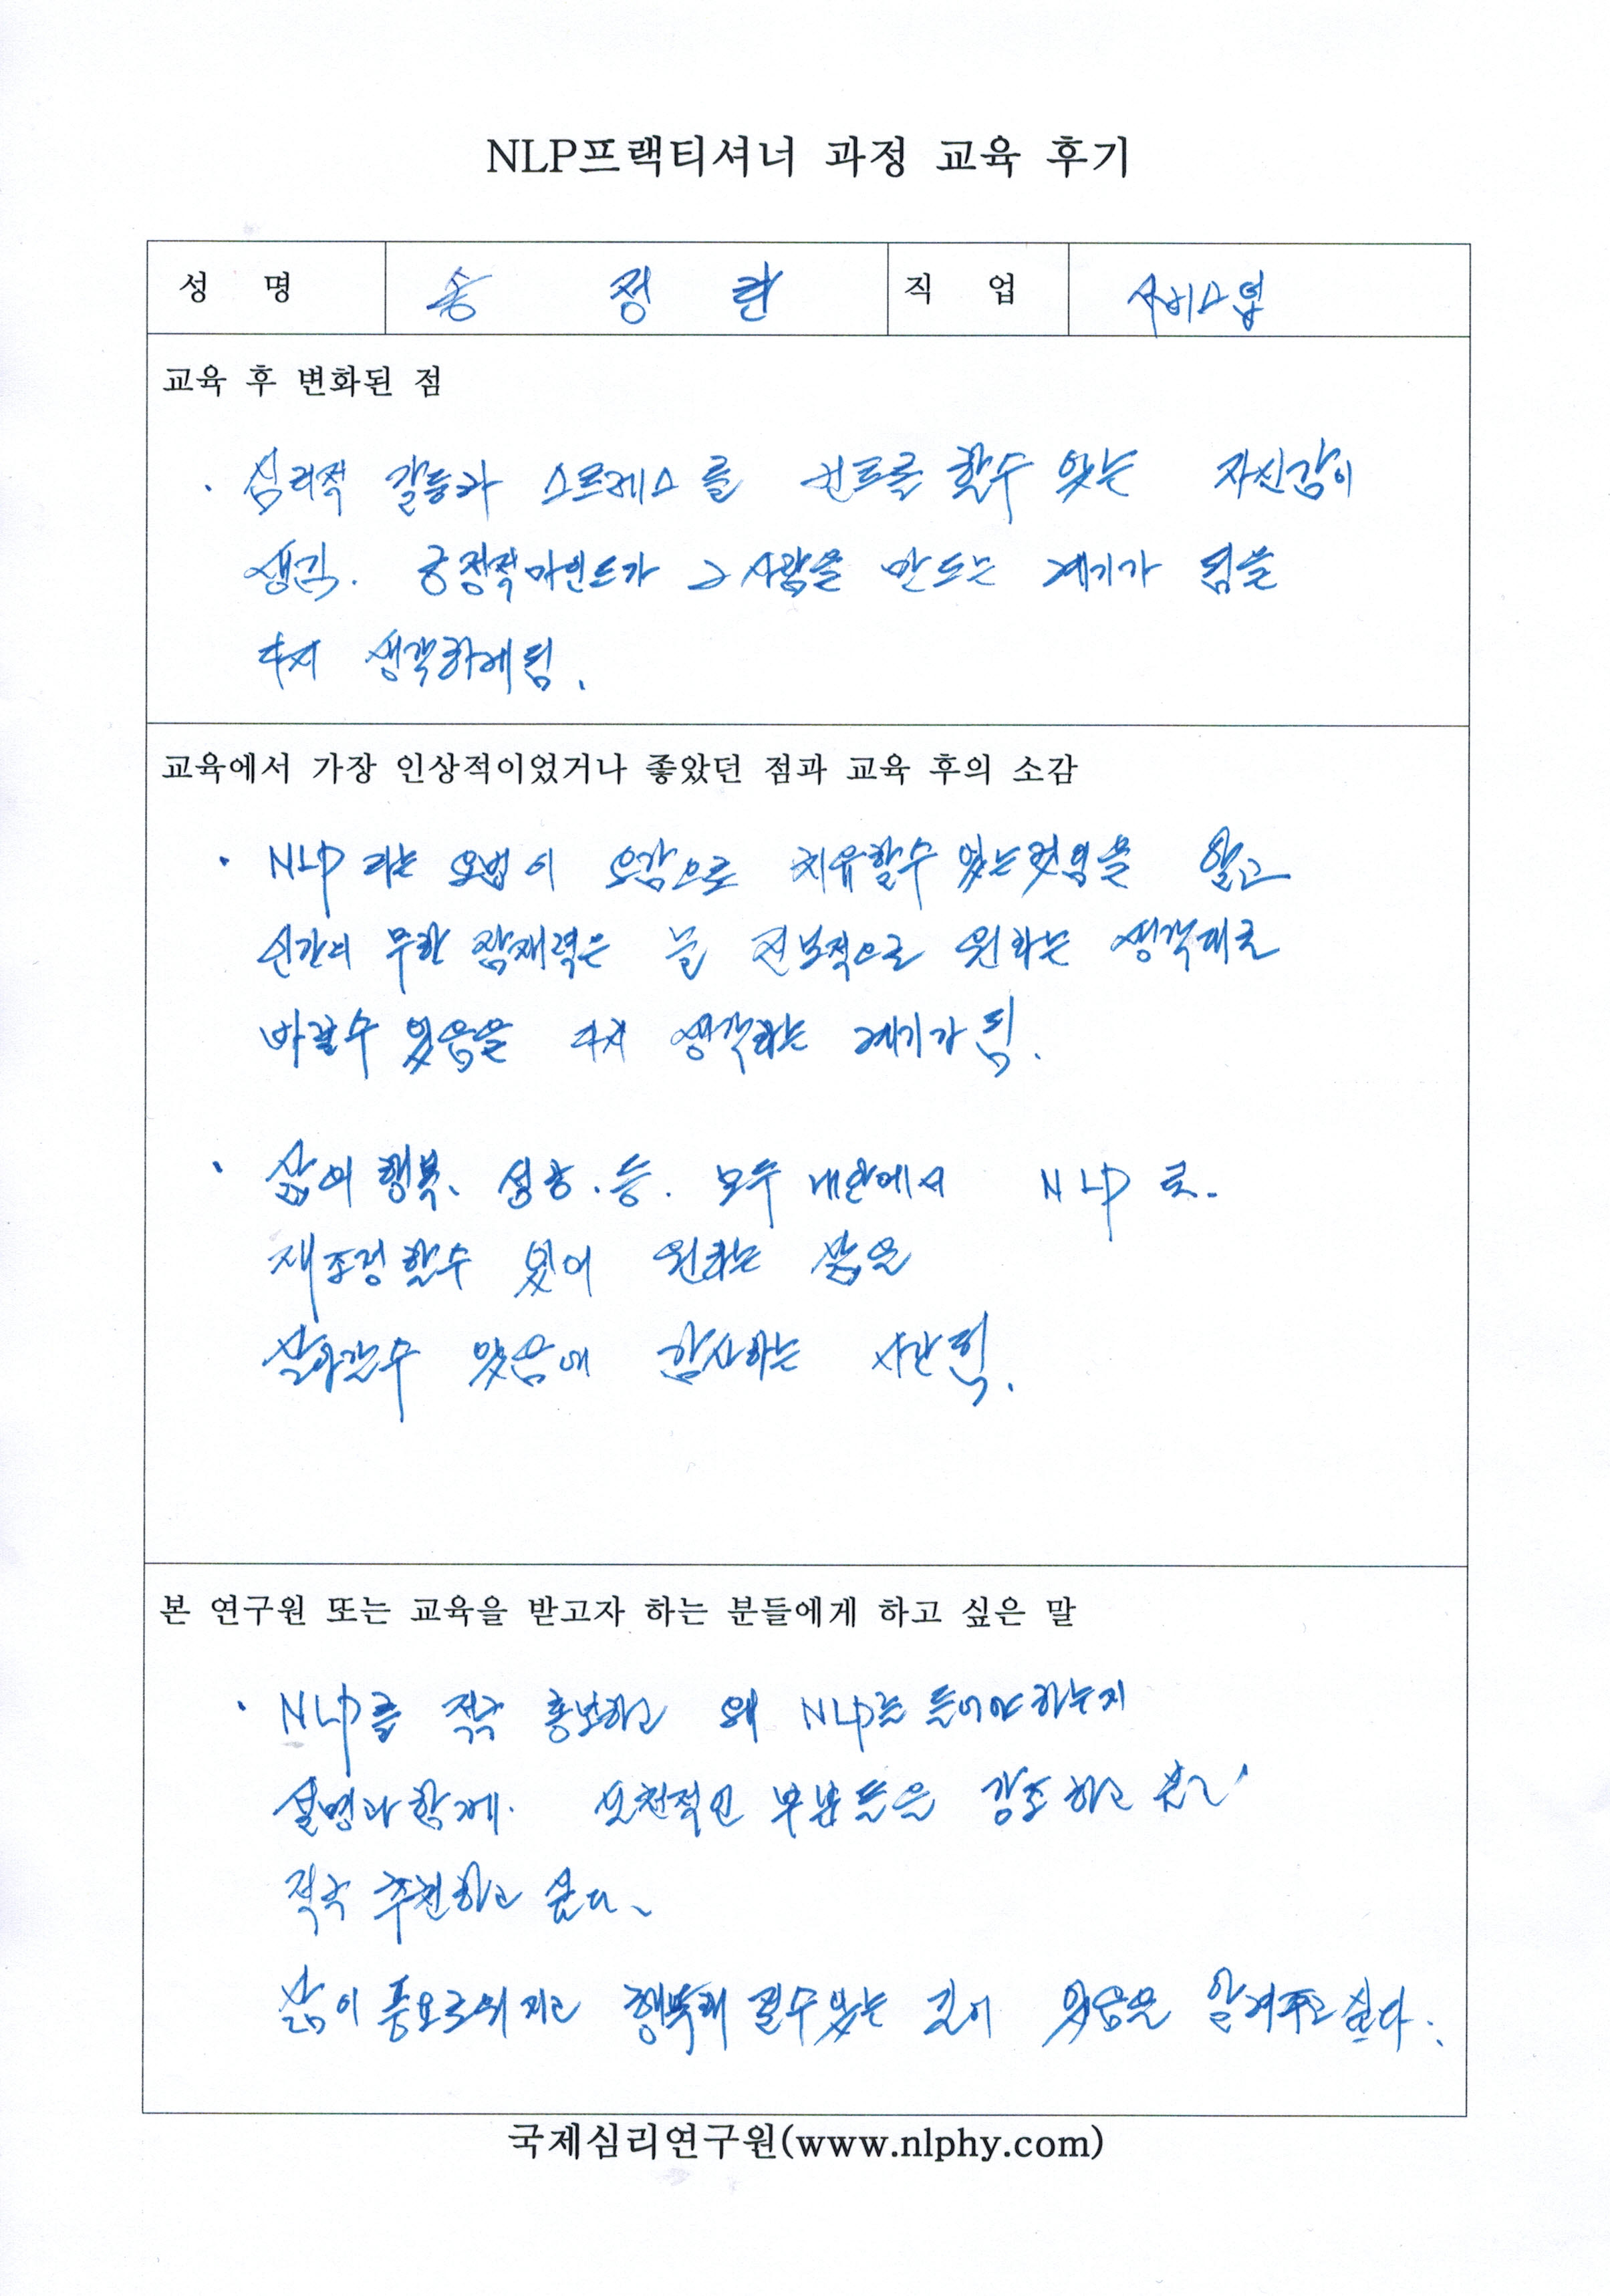 NLP프랙티셔너 과정 교육 후기
성 명 송 정 란 직 업 서비스업
교육 후 변화된 점
· 심리적 갈등과 스트레스를 컨트롤 할수 있는 자신감이
생김. 긍정적마인드가 그 사람을 만드는 계기가 됨을
다시 생각하게됨.
교육에서 가장 인상적이었거나 좋았던 점과 교육 후의 소감
· NLP 라는 요법이 오감으로 치유할수 있는것임을 알고
인간의 무한 잠재력은 늘 진보적으로 원하는 생각대로
바뀔수 있음을 다시 생각하는 계기가 됨.
· 삶의 행복. 성공. 등. 모두 내안에서 NLP 로.
재조정할수 있어 원하는 삶을
살아갈수 있음에 감사하는 시간됨.
본 연구원 또는 교육을 받고자 하는 분들에게 하고 싶은 말
· NLP를 적극 홍보하고 왜 NLP를 들어야하는지
설명과 함께. 실천적인 부분들을 강조하고
적극 추천하고 싶다.
삶이 풍요로워지고 행복해 질수있는 길이 있음을 알려주고싶다.
국제심리연구원(www.nlphy.com)